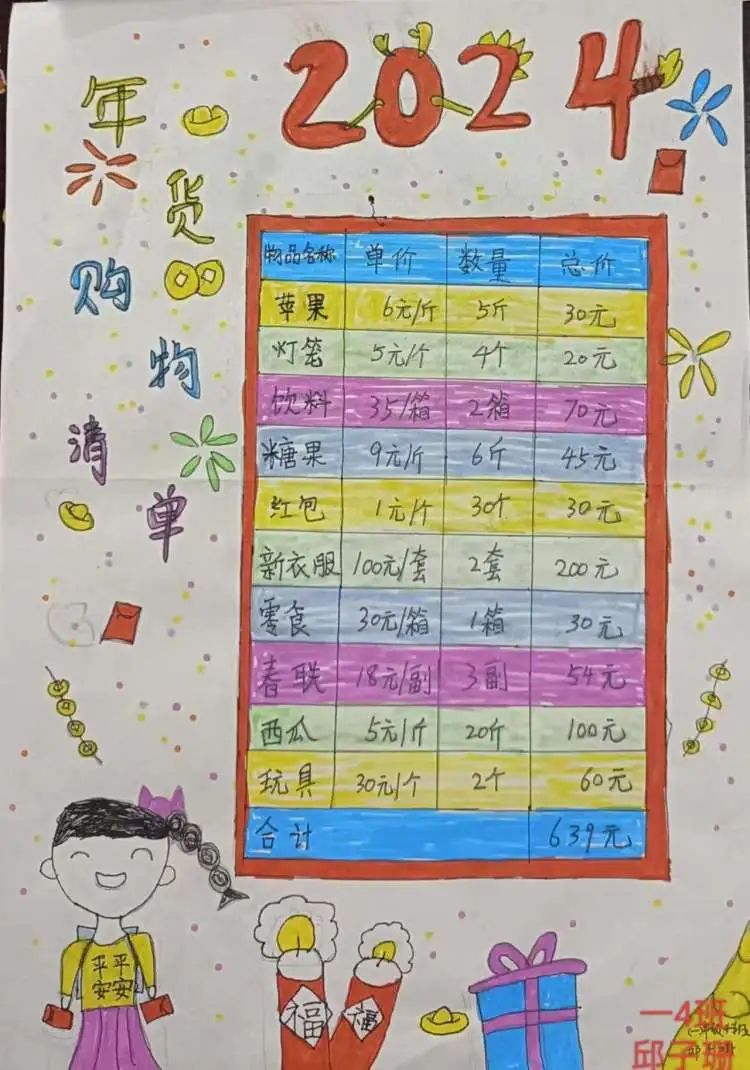 2024
年
货
购
物
清
单
物品名称 单价 数量 总价
苹果 6元/斤 5斤 30元
灯笼 5元/个 4个 20元
饮料 35/箱 2箱 70元
糖果 9元/斤 6斤 45元
红包 1元/个 30个 30元
新衣服 100元/套 2套 200元
零食 30元/箱 1箱 30元
春联 18元/副 3副 54元
西瓜 5元/斤 20斤 100元
玩具 30元/个 2个 60元
合计 639元
平平
安安
福
福
一4班
邱子珊